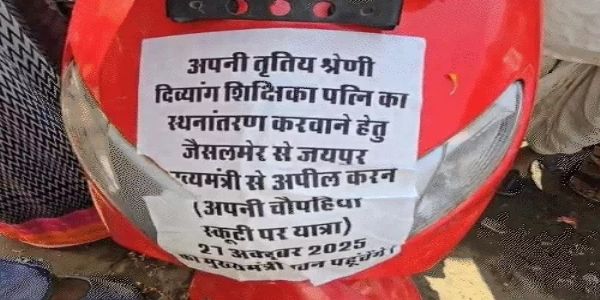 अपनी तृतिय श्रेणी
दिव्यांग शिक्षिका पत्नि का
स्थनांतरण करवाने हेतु
जैसलमेर से जयपुर
से अपील करन
(अपनी चौपहिया
स्कूटी पर यात्रा)
27 अक्टूबर 2025
पहूचेंगे